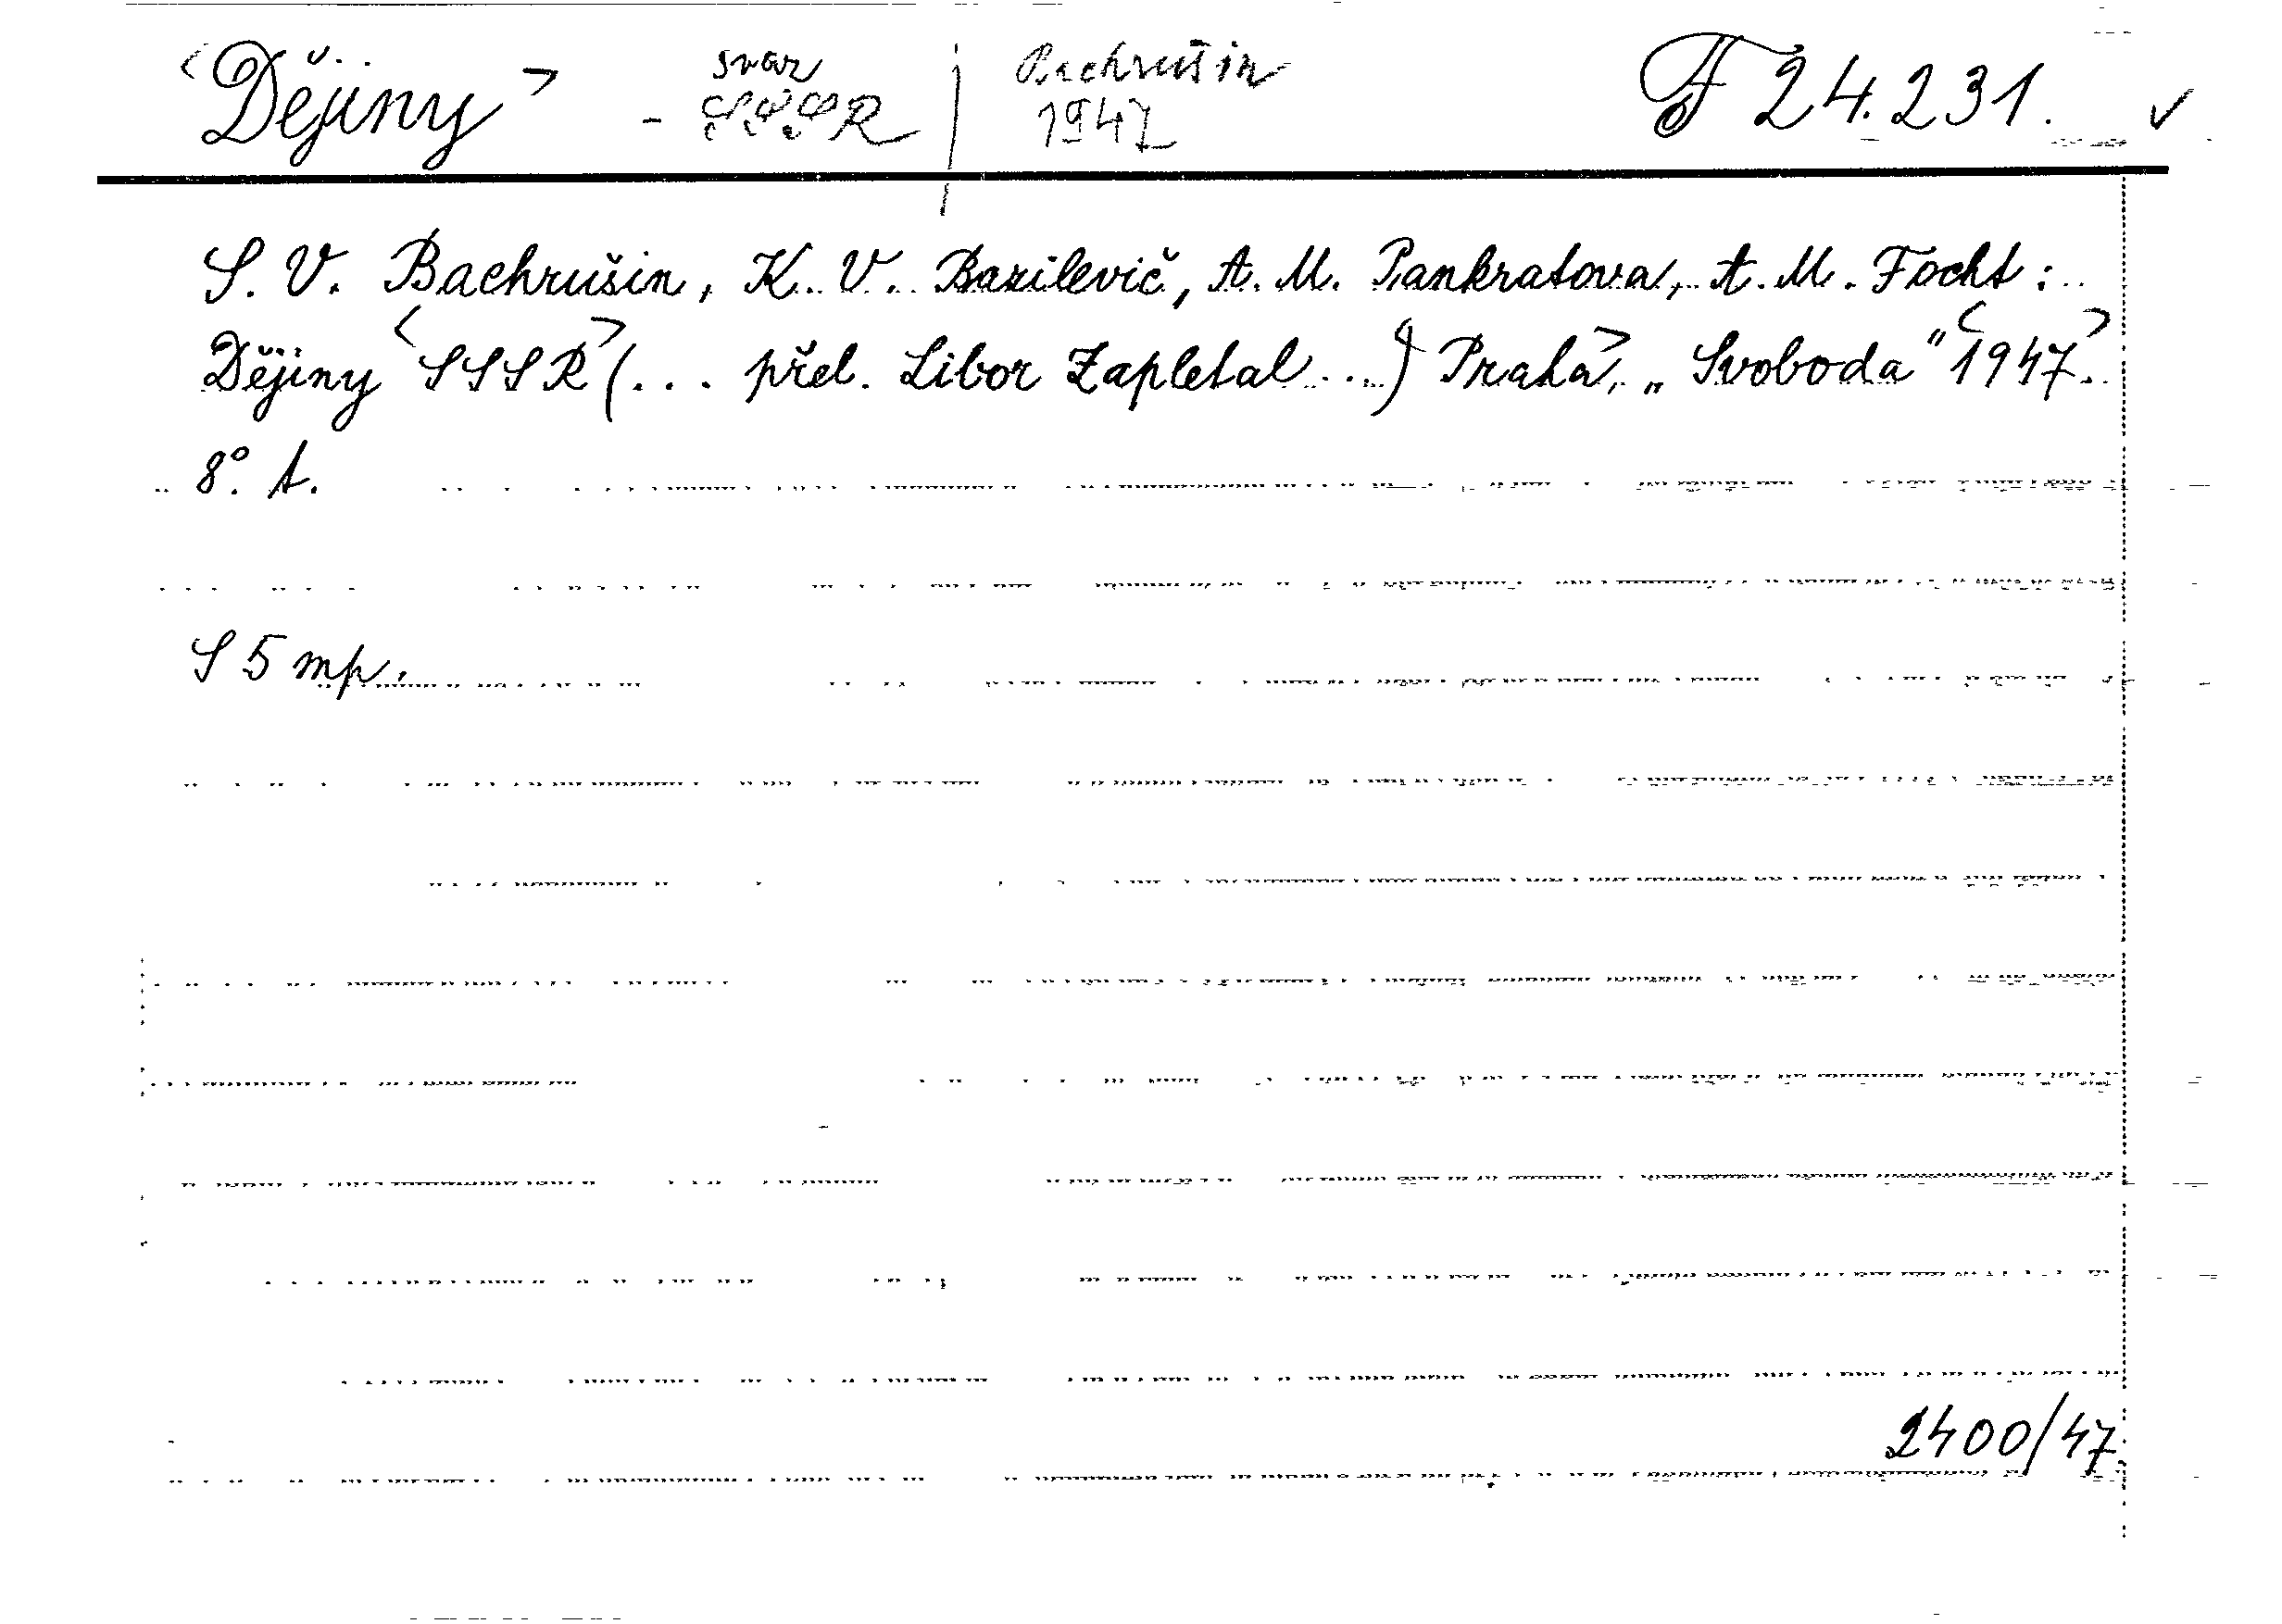 <Dějiny> - svaz SSSR | Bachrušin 1947 F 24.231. ✓
S. V. Bachrušin, K. V. Bazilevič, A. M. Pankratova, A. M. Focht:
Dějiny <SSSR> (... přel. Libor Zapletal ...) Praha>, „Svoboda" <1947>.
8°. t.
S 5 mp.
2400/47.